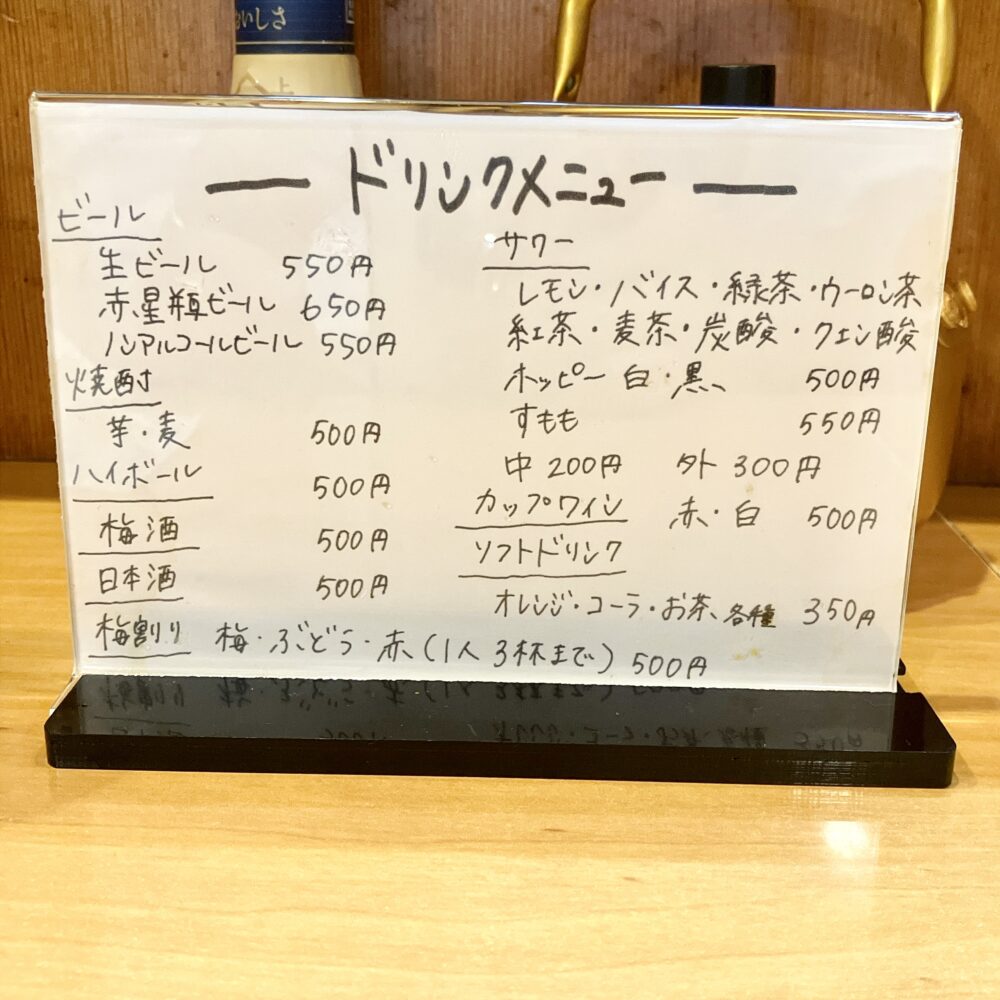 おいしさ
ードリンクメニューー
ビール
生ビール 550円
赤星瓶ビール 650円
ノンアルコールビール 550円
焼酎
芋・麦 500円
ハイボール 500円
梅酒 500円
日本酒 500円
梅割り 梅・ぶどう・赤(1人3杯まで) 500円
サワー
レモン・バイス・緑茶・ウーロン茶
紅茶・麦茶・炭酸・クエン酸
ホッピー 白・黒 500円
すもも 550円
中 200円 外 300円
カップワイン 赤・白 500円
ソフトドリンク
オレンジ・コーラ・お茶、各種 350円